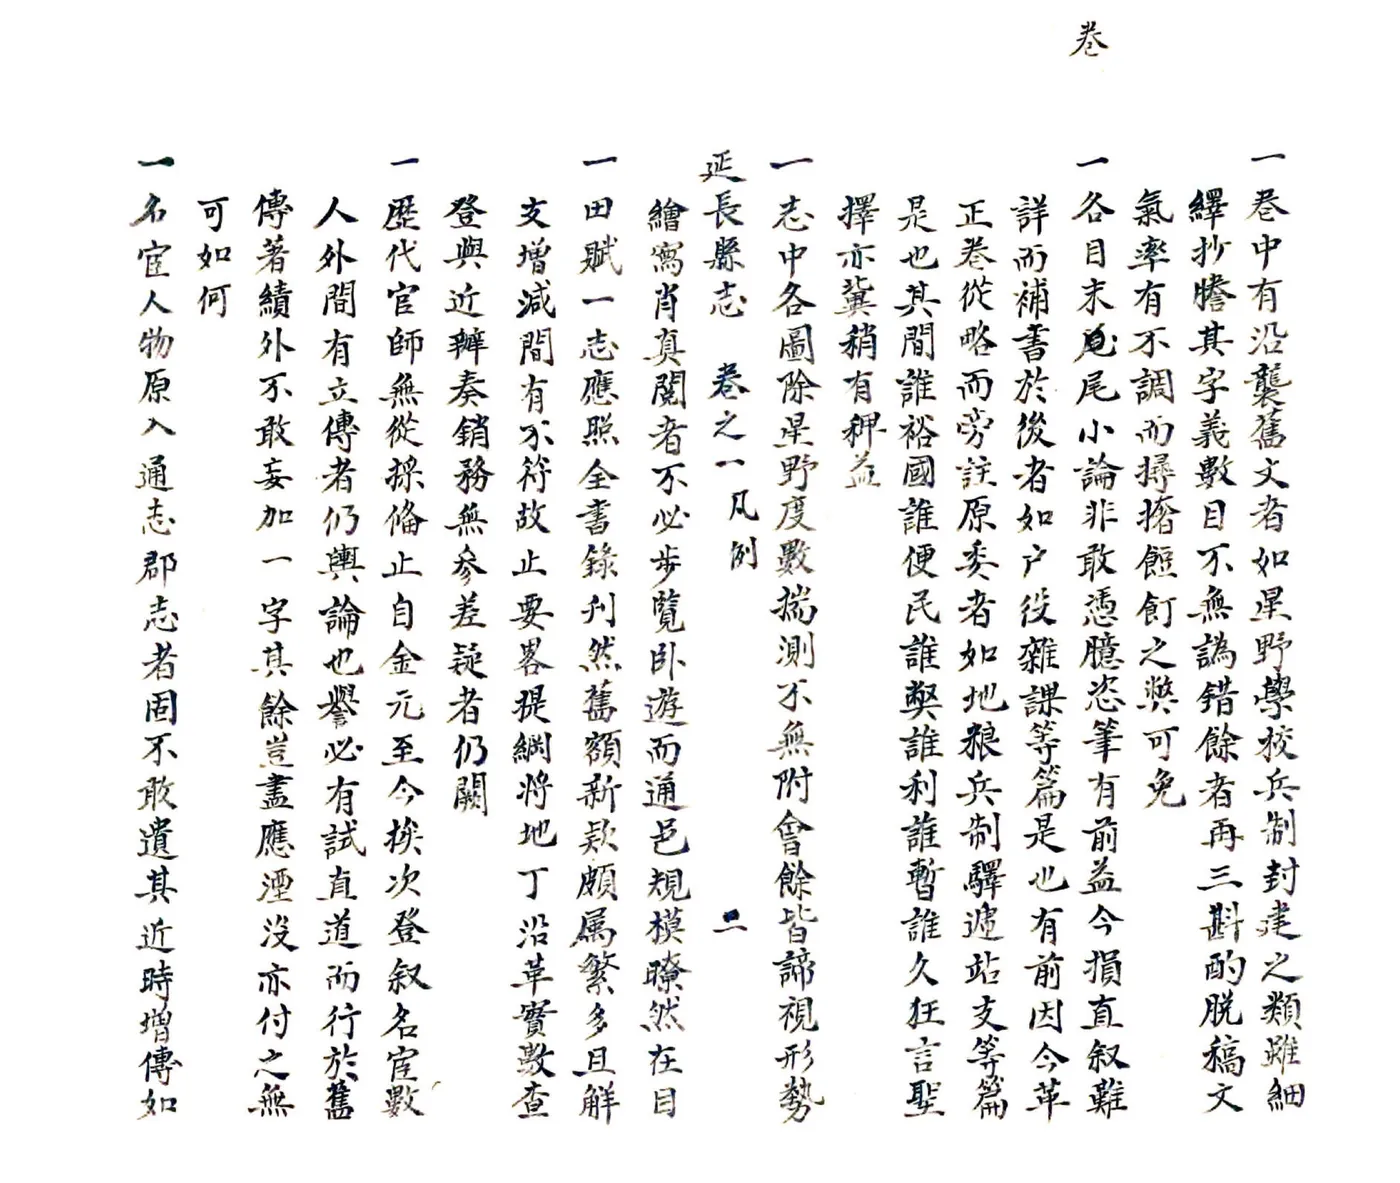 卷
一卷中有沿襲舊文者如星野學校兵制封建之類雖細
繹抄謄其字義數目不無譌錯餘者再三斟酌脱稿文
氣率有不調而撏撦餖飣之獘可免
一各目末尾小論非敢憑臆恣筆有前益今損直叙難
詳而補書於後者如户役雜課等篇是也有前因今革
正卷從略而旁註原委者如地粮兵制驛遞站支等篇
是也其間誰裕國誰便民誰獘誰利誰暫誰久狂言聖
擇亦冀稍有稗益
一志中各圖除星野度數揣測不無附會餘皆諦視形勢
延長縣志　卷之一凡例　二
繪寫肖真閱者不必步覽卧遊而通邑規模瞭然在目
一田賦一志應照全書錄刋然舊額新欵頗属繁多且解
支增減間有不符故止要畧提綱將地丁沿革實數查
登與近辦奏銷務無參差疑者仍闕
一歴代官師無從採俻止自金元至今挨次登叙名宦數
人外間有立傳者仍輿論也譽必有試直道而行於舊
傳著績外不敢妄加一字其餘豈盡應湮没亦付之無
可如何
一名宦人物原入通志郡志者固不敢遺其近時增傳如